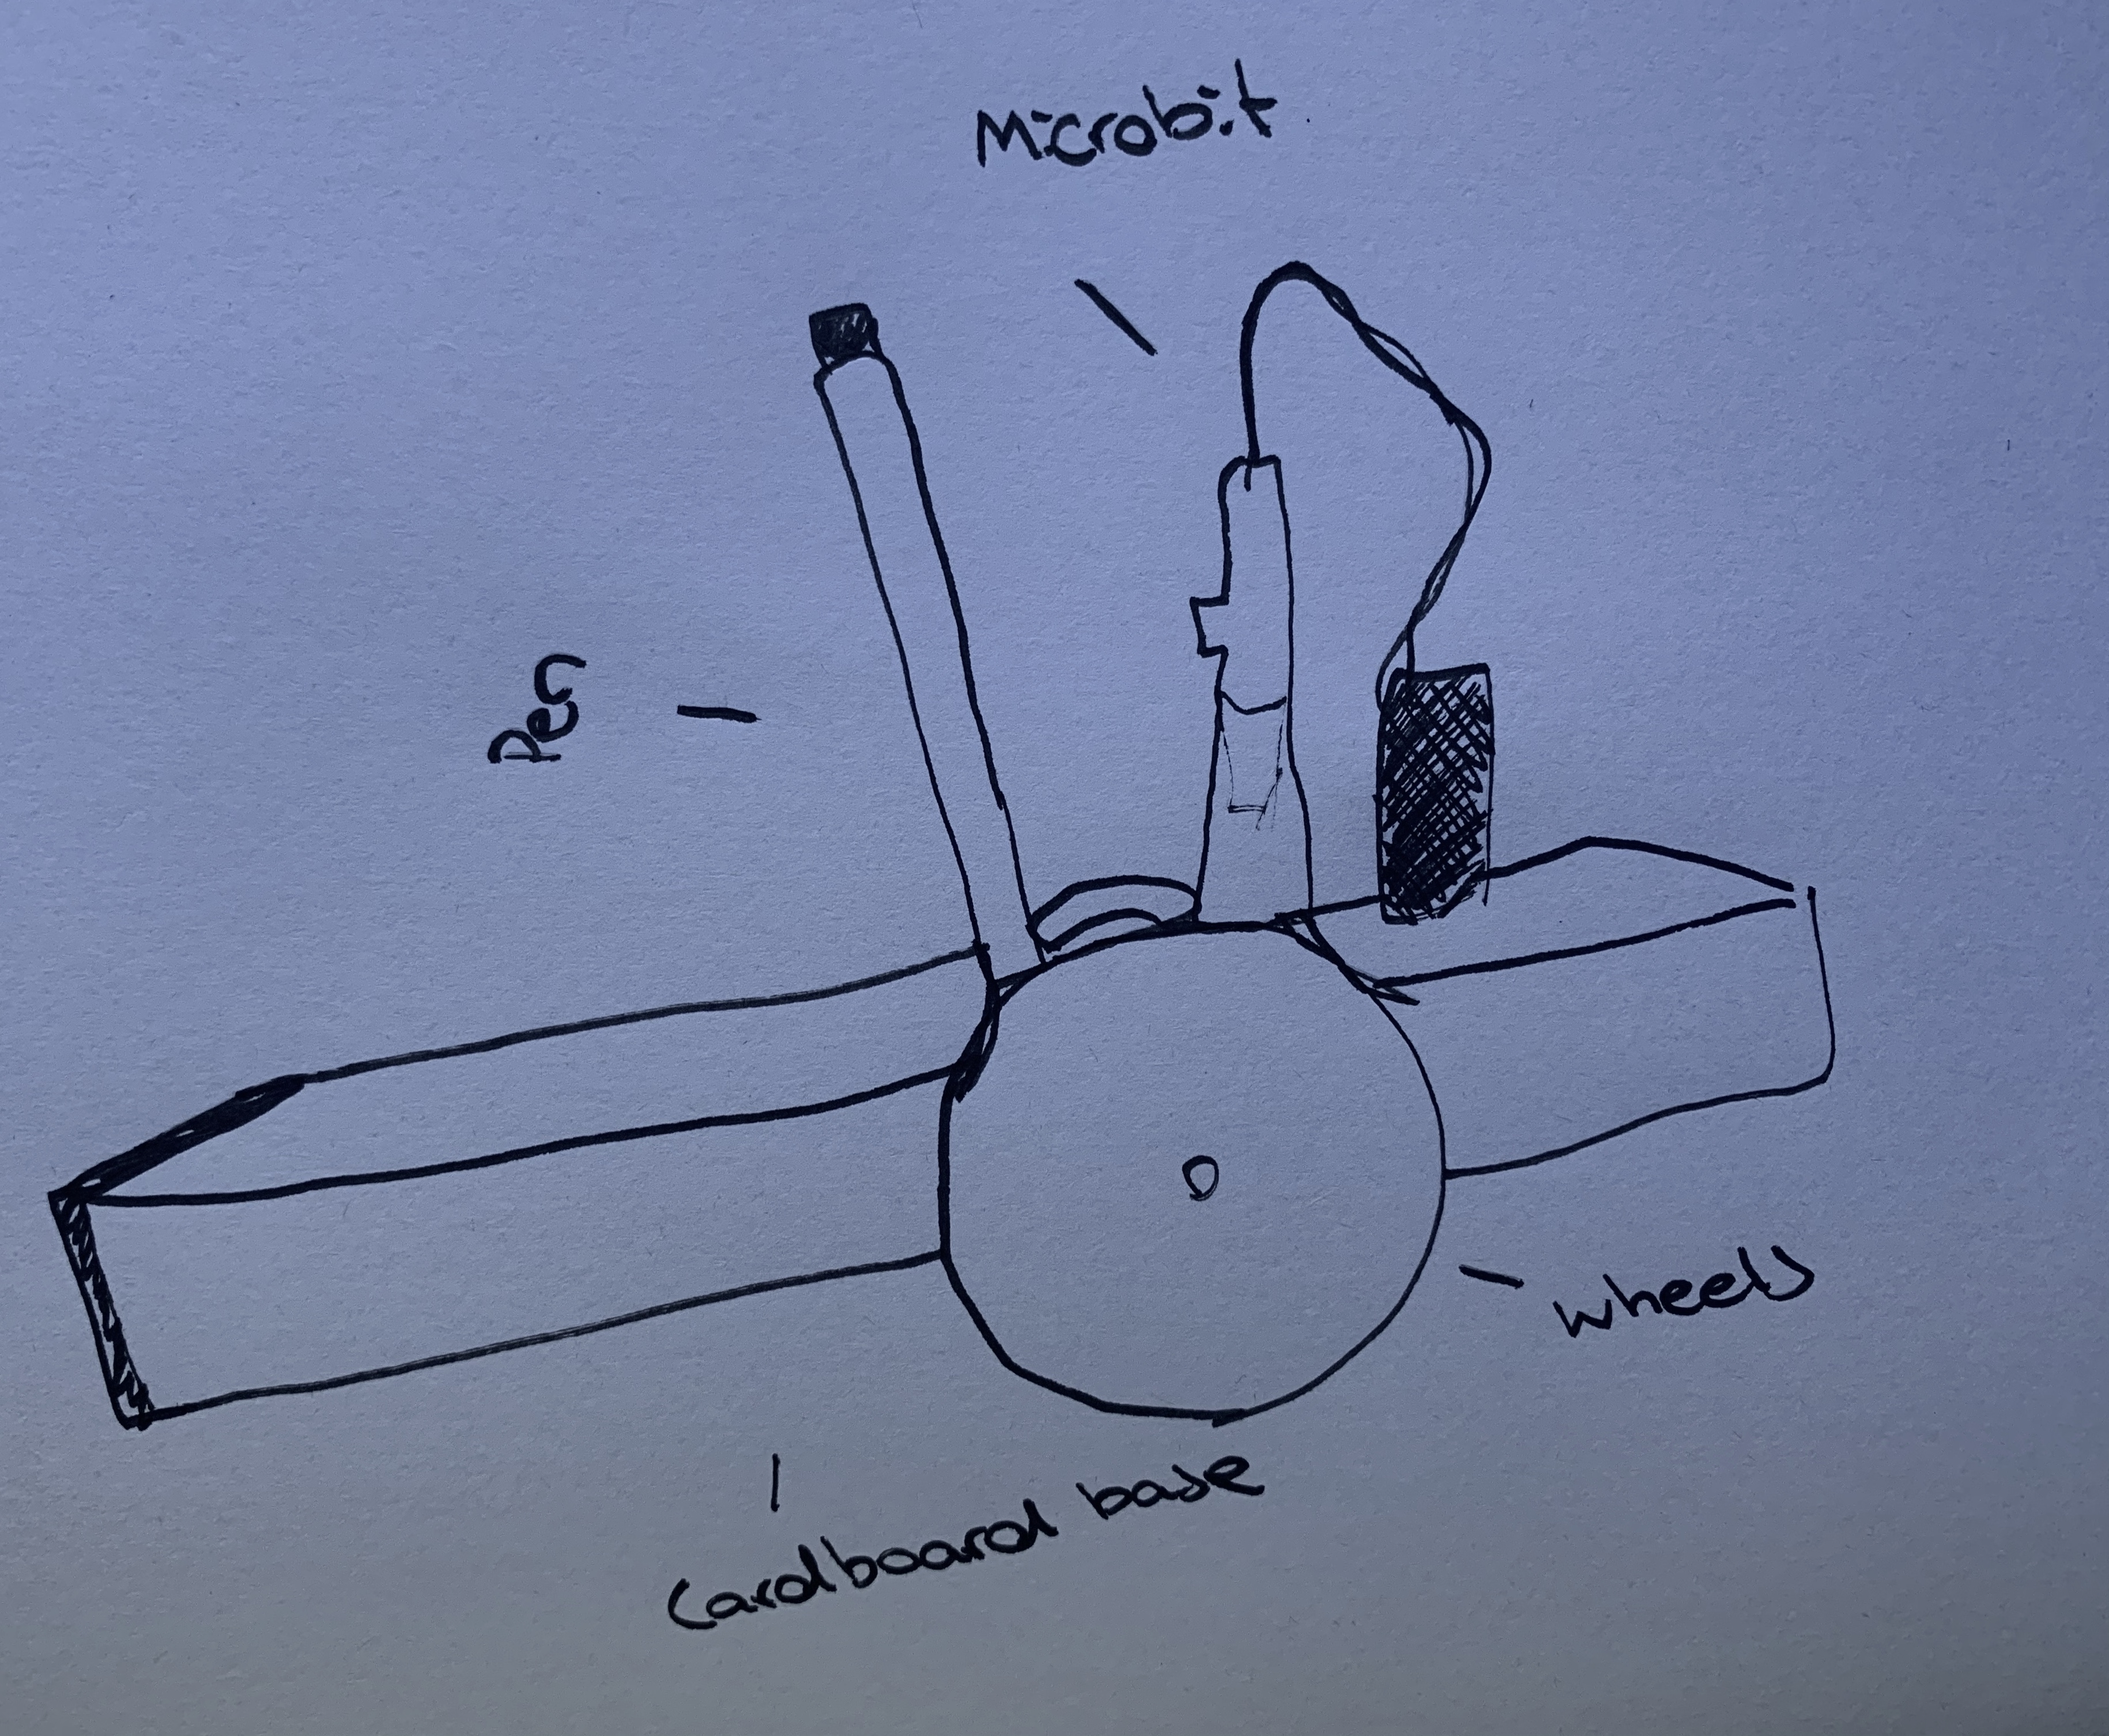 Microbit
Pen
wheels
Cardboard base